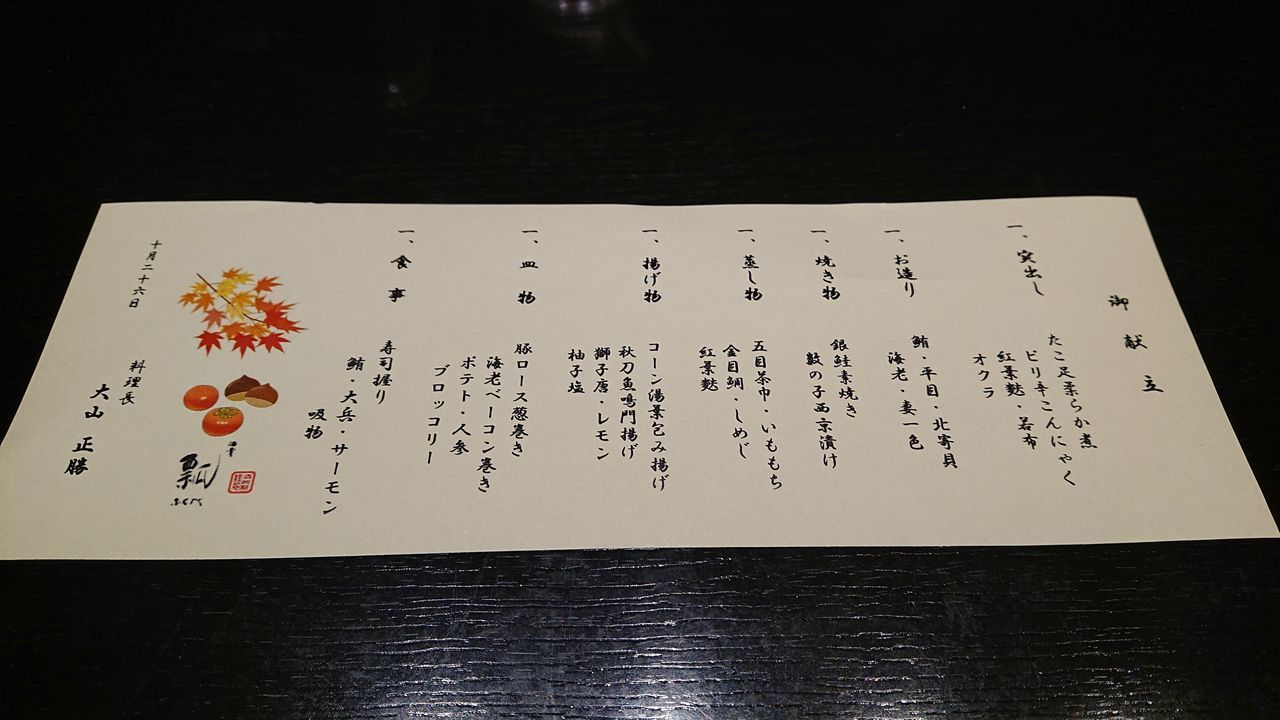 御献立
一、突出し
たこ足柔らか煮
ピリ辛こんにゃく
紅葉麩・若布
オクラ
一、お造り
鮪・平目・北寄貝
海老・妻一色
一、焼き物
銀鮭素焼き
数の子西京漬け
一、蒸し物
五目茶巾・いももち
金目鯛・しめじ
紅葉麩
一、揚げ物
コーン湯葉包み揚げ
秋刀魚鳴門揚げ
獅子唐・レモン
柚子塩
一、皿物
豚ロース葱巻き
海老ベーコン巻き
ポテト・人参
ブロッコリー
一、食事
寿司握り
鮪・大兵・サーモン
吸物
十月二十六日
料理長
大山 正勝
瓢